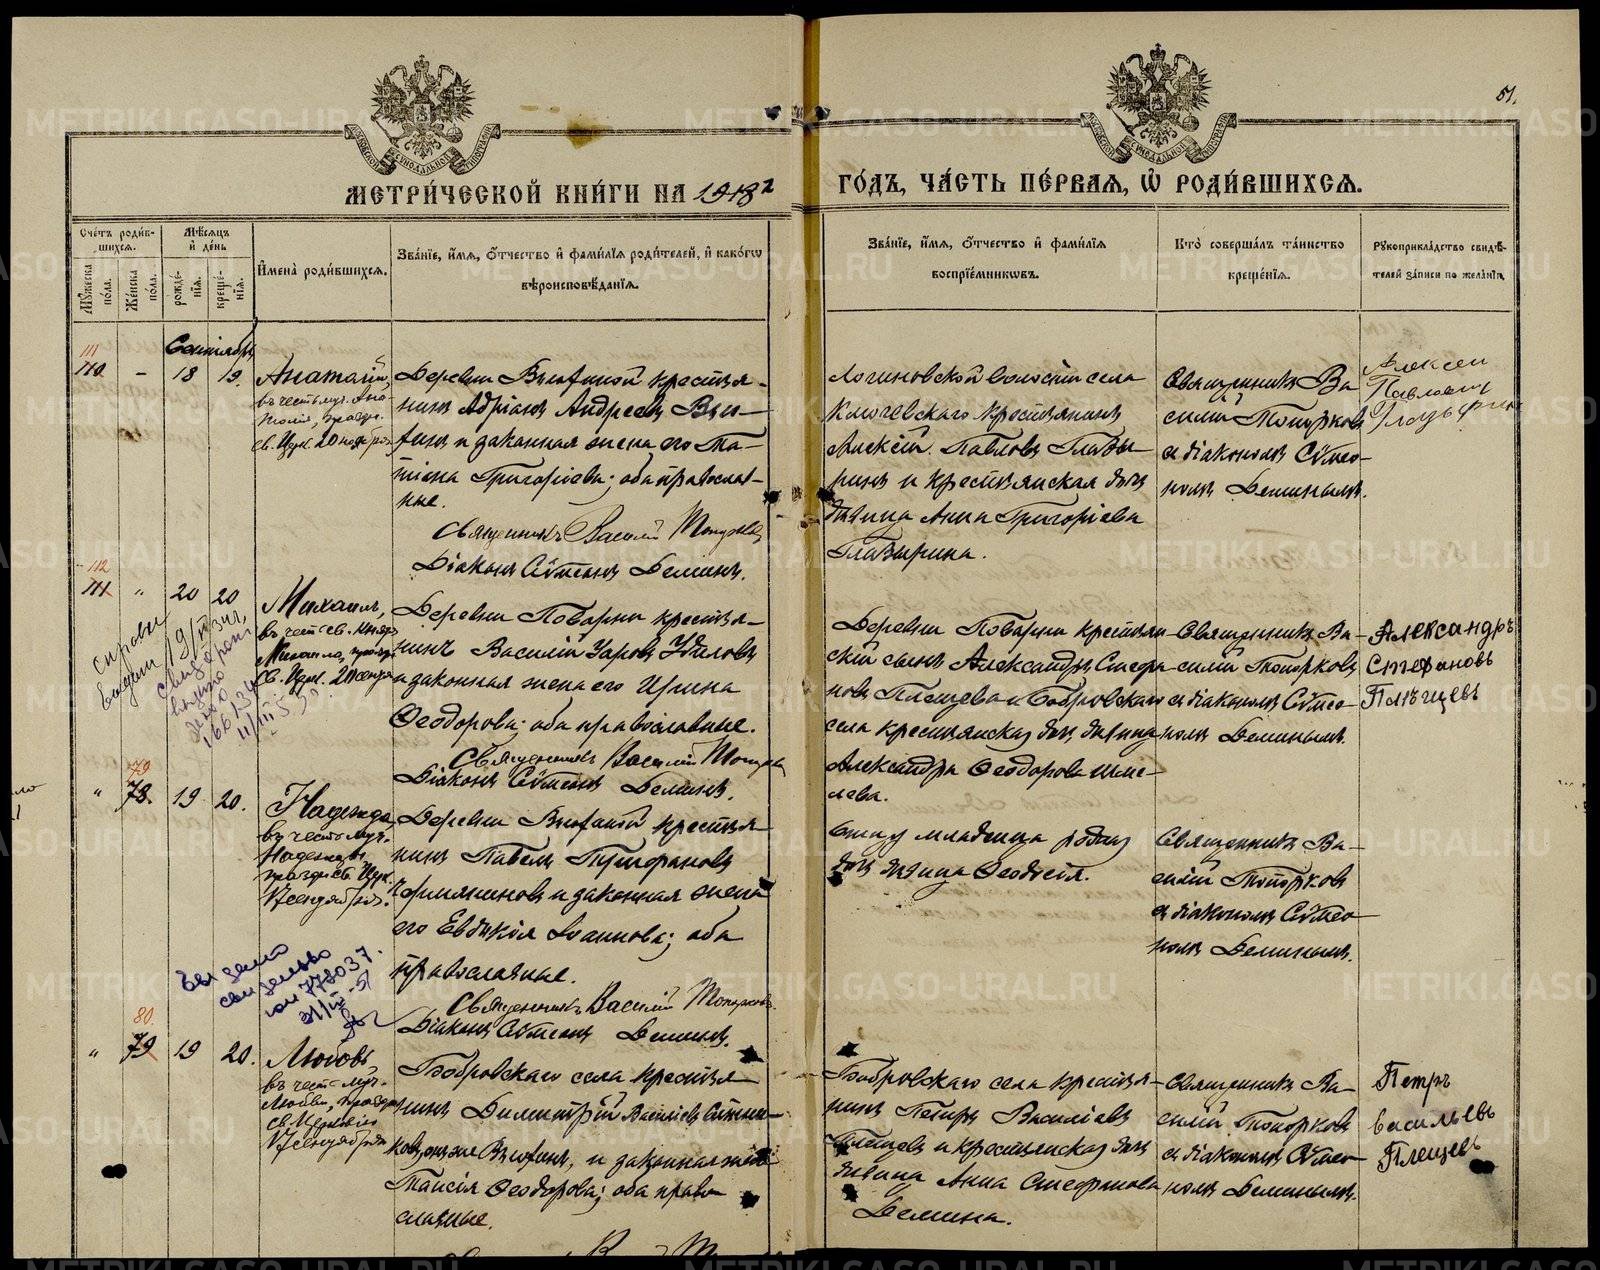 51.
МЕТРИ́ЧЕСКОЙ КНИ́ГИ НА 1918
ГО́ДЪ, ЧА́СТЬ ПЕ́РВАЯ, Ѡ РОДИ́ВШИХСЯ.
Сче́тъ роди́в-
шихся.
Мꙋжеска
по́ла.
Же́нска
по́ла.
Мѣ́сяцъ
и де́нь
рожде́-
нїя.
креще́-
нїя.
И҆мена̀ роди́вшихся.
Зва́нїе, и҆́мя, ѻ҆́тчество и҆ фами́лїя роди́телей, и҆ како́гѡ
вѣроисповѣ́данїя.
Зва́нїе, и҆́мя, ѻ҆́тчество и҆ фами́лїя
воспрїе́мникѡвъ.
Кто̀ соверша́лъ та́инство
креще́нїя.
Рꙋкоприкла́дство свидѣ́-
телей за́писи по жела́нїю.
Сентябрь
111
110. - 18 19.
Анатолій,
въ честь муч. Ана-
толія, праздн.
св. Церк. 20 ноября
Деревни Вьюхиной крестья-
нинъ Адріанъ Андреевъ Вью-
хинъ и законная жена его Та-
тіана Григоріева; оба православ-
ные.
Священникъ Василій Топорковъ
Діаконъ Сѵмеонъ Деминъ.
Логиновской волости села
Ключевскаго крестьянинъ
Алексій Павловъ Глазы-
ринъ и крестьянская дочь
дѣвица Анна Григоріева
Глазырина.
Священникъ Ва-
силій Топорковъ
съ діакономъ Сѵмео-
номъ Деминымъ.
Алексей
Павлович
112
111 " 20 20
Михаилъ,
въ честь св. князя
Михаила, праздн.
св. Церк. 20 сентября
Деревни Поварни крестья-
нинъ Василій Уаровъ Удиловъ
и законная жена его Ирина
Ѳеодорова; оба православные.
Священникъ Василій Топорковъ
Діаконъ Сѵмеонъ Деминъ.
Деревни Поварни крестьян-
скій сынъ Александръ Стефа-
новъ Плещевъ и Бобровскаго
села крестьянская дочь дѣвица
Александра Ѳеодорова Шме-
лева.
Священникъ Ва-
силій Топорковъ
съ діакономъ Сѵмео-
номъ Деминымъ.
Александръ
Стефановъ
Плѣщевъ
79
" 78. 19 20.
Надежда,
въ честь муч.
Надежды,
праздн. св. Церк.
17 сентября.
Деревни Вьюхиной крестья-
нинъ Павелъ
и законная жена
его Евдокія Іоаннова; оба
православные.
Священникъ Василій Топорковъ
Діаконъ Сѵмеонъ Деминъ.
младенца родная
дочь дѣвица Ѳеодосія.
Священникъ Ва-
силій Топорковъ
съ діакономъ Сѵмео-
номъ Деминымъ.
80.
" 79 19 20.
Любовь,
въ честь муч.
Любви, праздн.
св. Церковію
17 сентября
Бобровскаго села крестья-
нинъ Димитрій Василіевъ
и законная жена
Таисія Ѳеодорова; оба право-
славные.
Бобровскаго села крестья-
нинъ Петръ Василіевъ
Плещевъ и крестьянская дочь
дѣвица Анна Стефанова
Демина.
Священникъ Ва-
силій Топорковъ
съ діакономъ Сѵмео-
номъ Деминымъ.
Петръ
Васильевъ
Плещевъ